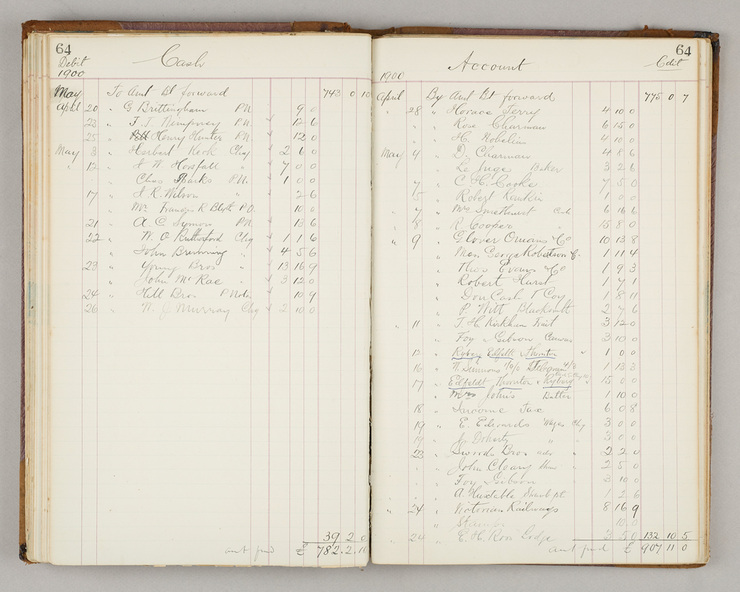 64
Debit
1900
Cash
May " To Amt Bt forward 743 0 10
April 20 " G Brittingham P.N. 9 0
23 " T. J. Humphrey P.N. 12 6
25 " Henry Hunter P.N. 12 0
May 3 " Herbert Keck Chq 2 6 0
" 12 " J. W. Horsfall " 7 0 0
" Chas Sharks P.N. 1 0 0
17 " J. R. Wilson " 2 6
" Mr Francis R Blyth P.O. 10 0
21 " A. C. Symon P.N.
22 " W. O. Rutherford Chq 1 1 6
" John Browning " 4 5 6
23 " Young Bros " 13 16 9
" John McRae " 3 12 0
24 " Hill Bros P Note 10 9
26 " W. J Murray Chq 2 10 0
39 2 0
amt fwd £ 782 2 10
64
Account
Cdit
1900
April " By Amt Bt forward 775 0 7
" 28 " Horace Terry 4 10 0
" Rose Charman 6 15 0
" H. 4 10 0
May 4 " D. Charman 4 8 6
" Baker 3 2 6
" 7 " C. H. Cooke 7 5 0
" Robert Rankin 1 0 0
" " Mc 6 16 6
" 8 " R. Cooper " 15 8 0
" 9 " Glover Onians & Co 10 13 8
" George Robertson & C. 1 11 4
" Thos Evans & Co 1 9 3
" Robert Hurst 1 7 1
" Don Cash T Coy 1 8 11
" P. Witt Blacksmith 2 7 6
" 11 " T. H. Kirkham Fruit 3 12 0
" Foy & Gibson 3 10 0
" Thornton " 1 0 0
16 " 1 13 3
17 " Edfeldt Thornton & Ryberg 15 0 0
" Johns Butter 1 10 0
18 " Income Tax 6 0 8
19 " E. Edwards Wages Chq 3 0 0
19 " J. Doherty " " 3 0 0
23 " Swords Bros 2 2 0
" John Cleary 2 5 0
" Foy & Gibson 10 0
" A. 1 2 6
" 24 " Victorian Railways 8 16 9
" Stamps 10 0
" 24 " E. H. Row Lodge 3 5 0 132 10 5
amt fwd £ 907 11 0